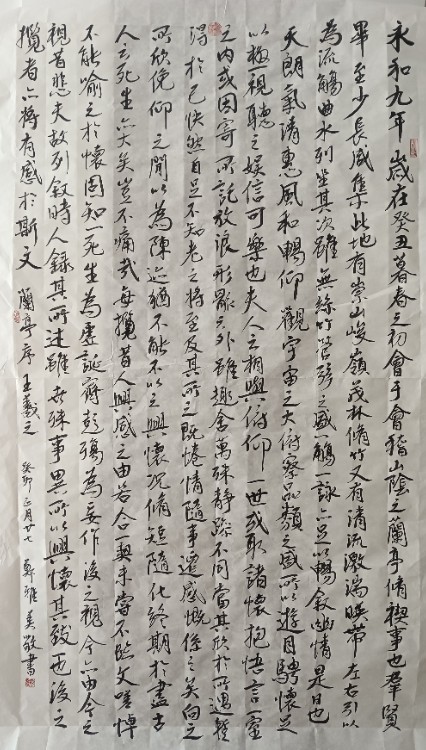 永和九年歲在癸丑暮春之初會于會稽山陰之蘭亭脩禊事也羣賢
畢至少長咸集此地有崇山峻嶺茂林脩竹又有清流激湍暎帶左右引以
為流觴曲水列坐其次雖無絲竹管弦之盛一觴一詠亦足以暢敘幽情是日也
天朗氣清惠風和暢仰觀宇宙之大俯察品類之盛所以遊目騁懷足
以極視聽之娛信可樂也夫人之相與俯仰一世或取諸懷抱悟言一室
之內或因寄所託放浪形骸之外雖趣舍萬殊靜躁不同當其欣於所遇暫
得於己快然自足不知老之將至及其所之既惓情隨事遷感慨係之矣向之
所欣俛仰之間以為陳迹猶不能不以之興懷況脩短隨化終期於盡古
人云死生亦大矣豈不痛哉每攬昔人興感之由若合一契未嘗不臨文嗟悼
不能喻之於懷固知一死生為虛誕齊彭殤為妄作後之視今亦由今之
視昔悲夫故列敘時人錄其所述雖世殊事異所以興懷其致一也後之
攬者亦將有感於斯文 蘭亭序 王羲之 癸卯正月廿七 鄭雅美敬書